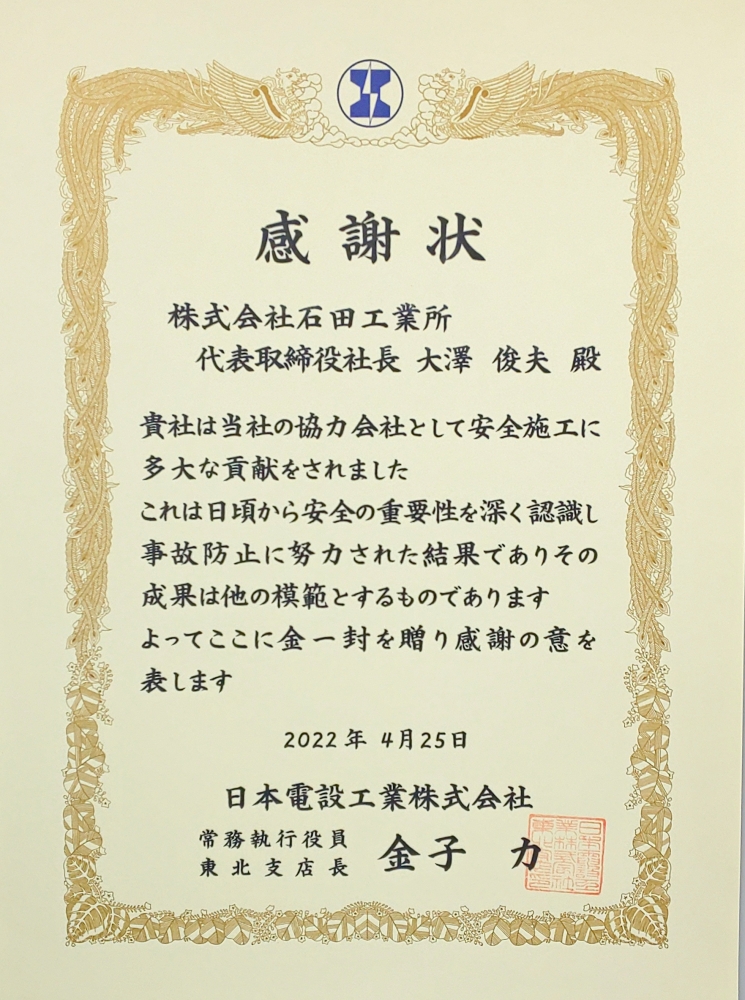 感謝状
株式会社石田工業所
代表取締役社長 大澤 俊夫 殿
貴社は当社の協力会社として安全施工に
多大な貢献をされました
これは日頃から安全の重要性を深く認識し
事故防止に努力された結果でありその
成果は他の模範とするものであります
よってここに金一封を贈り感謝の意を
表します
2022年 4月25日
日本電設工業株式会社
常務執行役員
東北支店長 金子 力